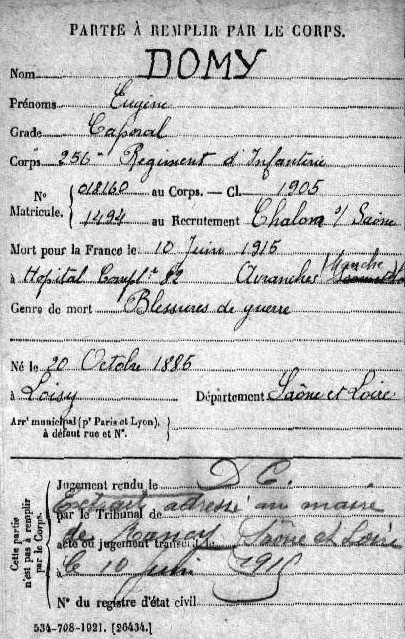 PARTIE À REMPLIR PAR LE CORPS.
Nom DOMY
Prénoms Eugène
Grade Caporal
Corps 256e Régiment d'Infanterie
N° Matricule. 018160 au Corps. — Cl. 1905
1494 au Recrutement Chalon s/ Saône
Mort pour la France le 10 Juin 1915
à Hopital Compl.re 82 Avranches Manche
Genre de mort Blessures de guerre
Né le 20 Octobre 1885
à Loisy Département Saône et Loire
Arrt municipal (pr Paris et Lyon), à défaut rue et N°.
Cette partie n'est pas à remplir par le Corps.
Jugement rendu le D C.
par le Tribunal de
Extrait adressé au maire
acte ou jugement transcrit le
de Saône et Loire
à le 10 juin 1915
N° du registre d'état civil
534-708-1921. [26434.]